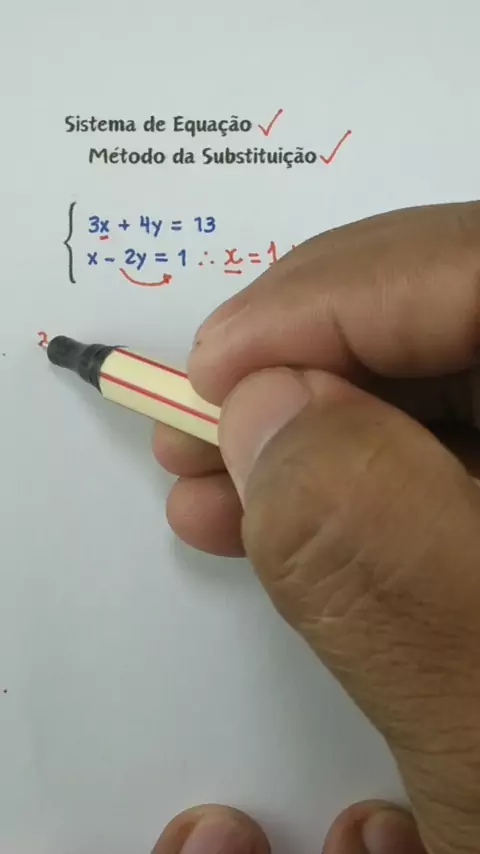 Sistema de Equação ✓
Método da Substituição ✓
3x + 4y = 13
x - 2y = 1 ∴ x = 1